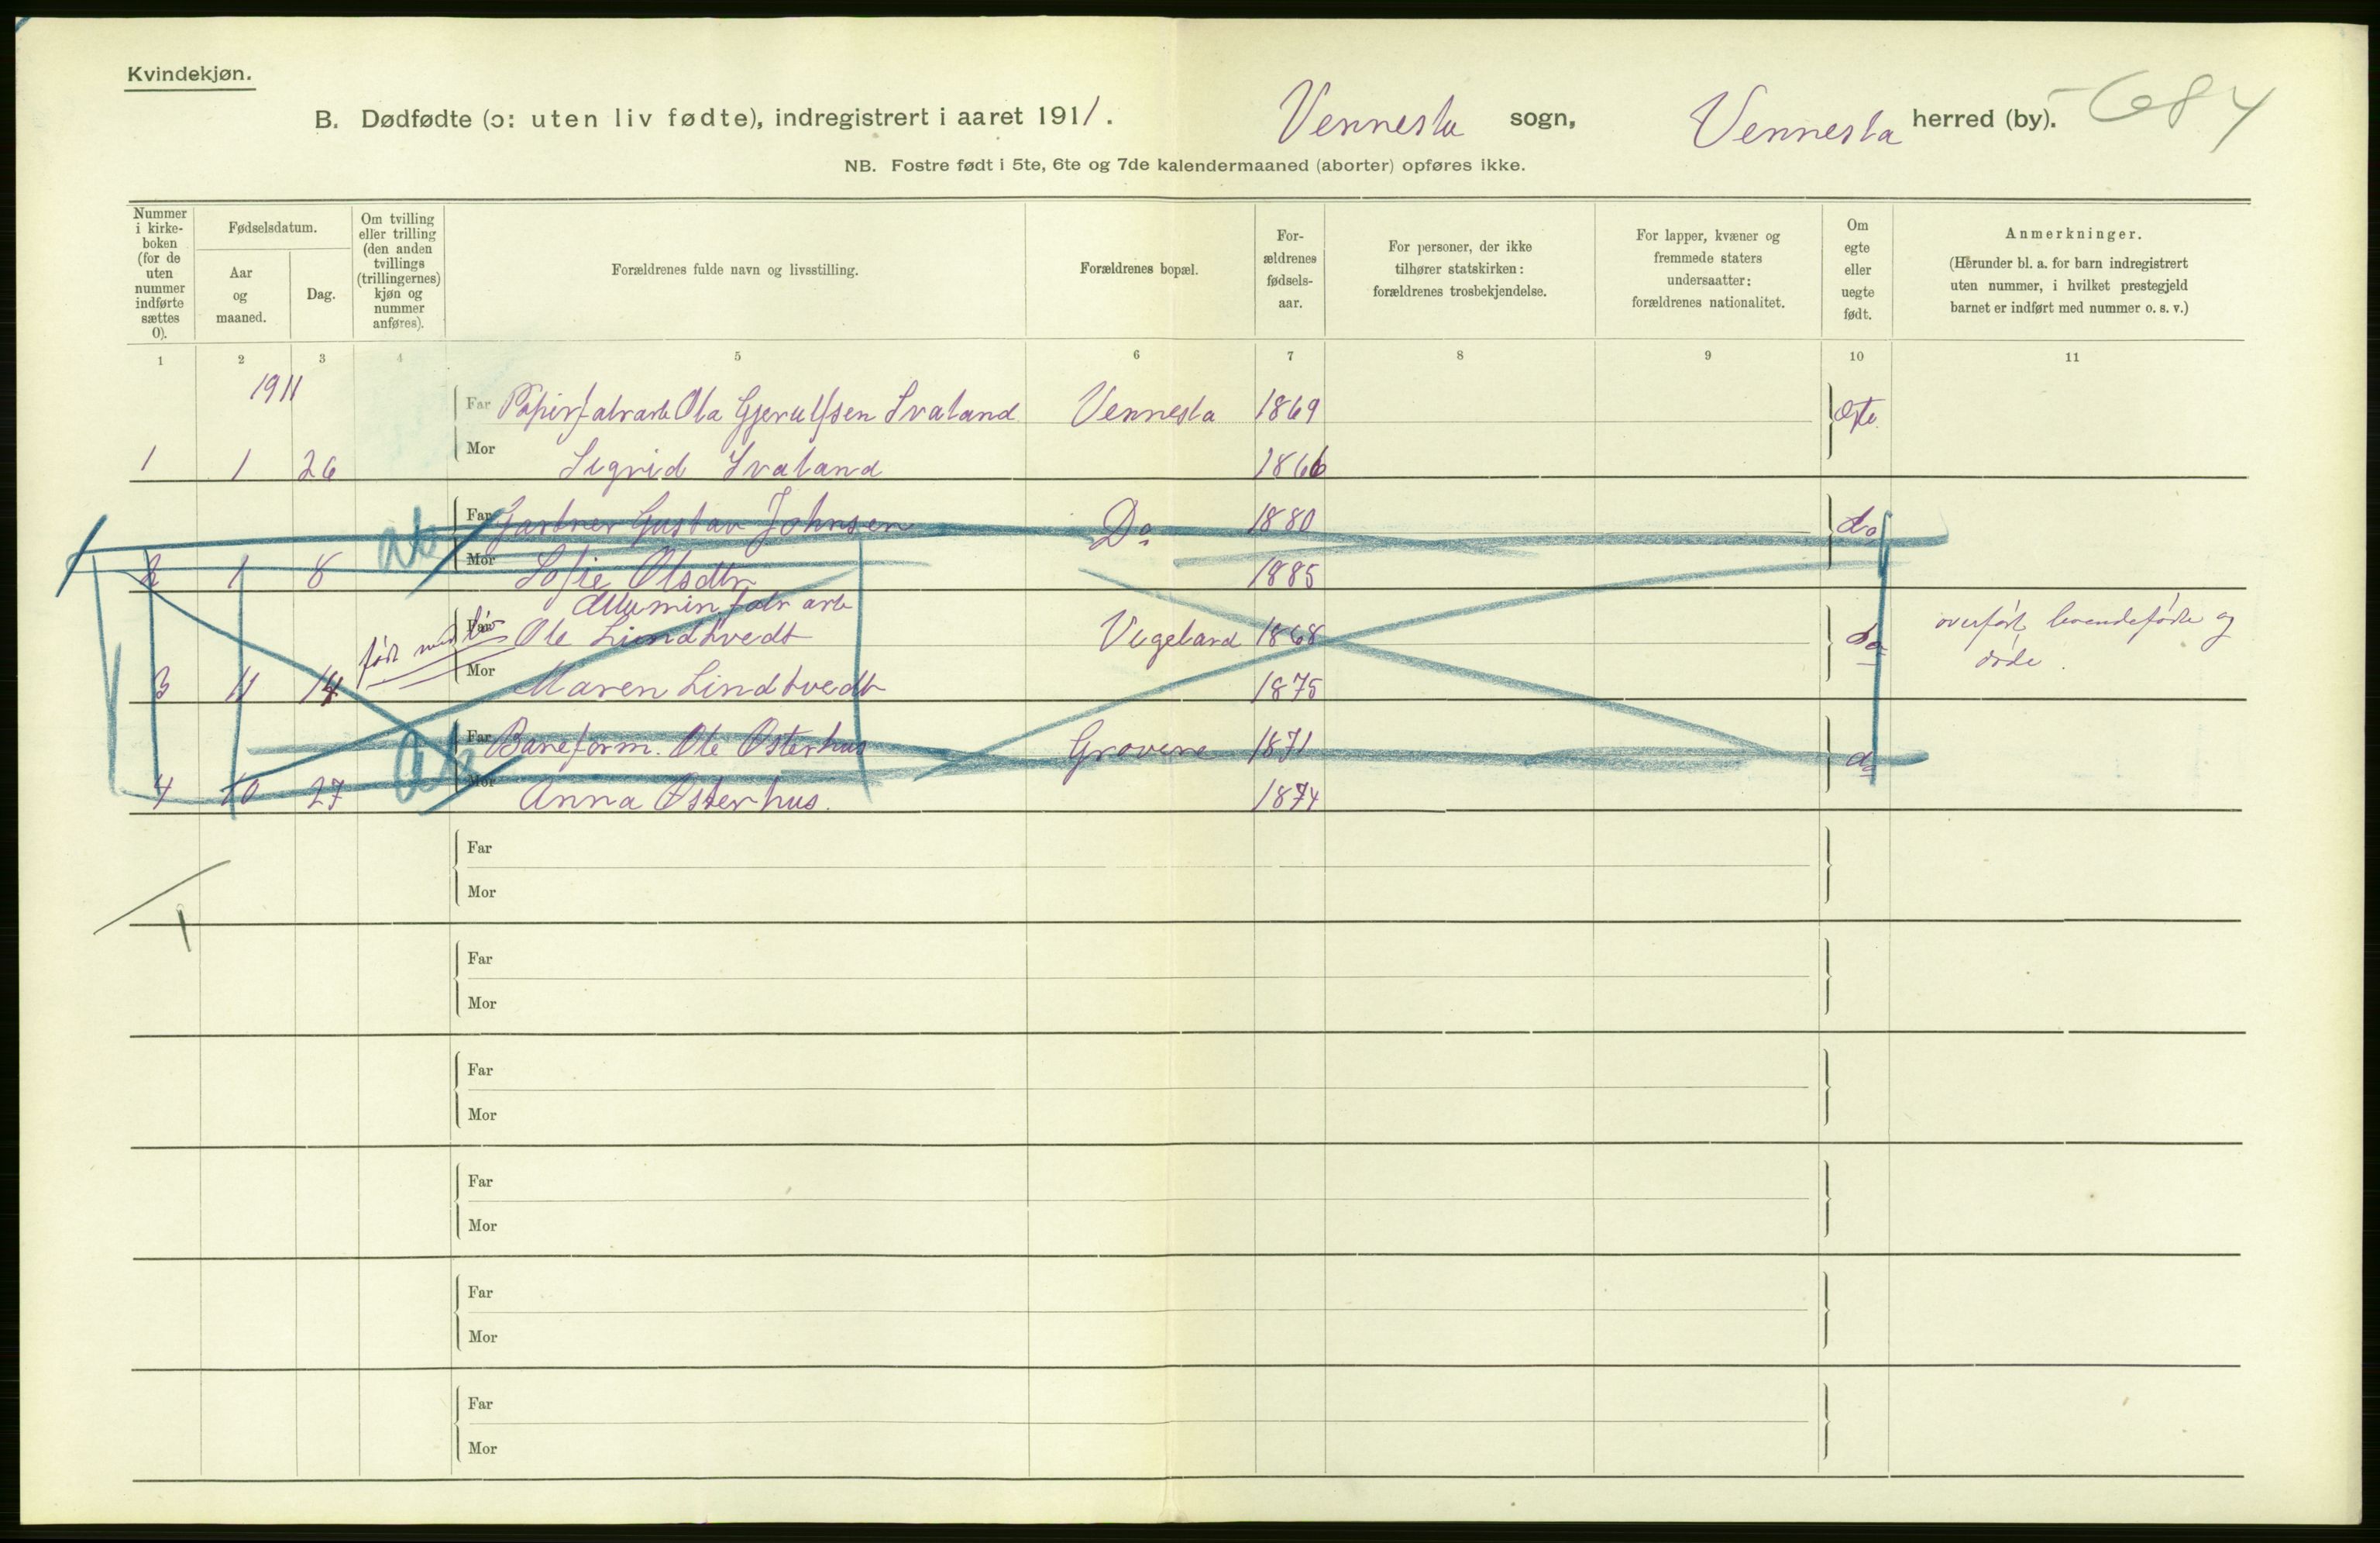 Kvindekjøn.
B. Dødfødte (ɔ: uten liv fødte), indregistrert i aaret 1911. Vennesla sogn, Vennesla herred (by). -684
NB. Fostre født i 5te, 6te og 7de kalendermaaned (aborter) opføres ikke.
Nummer i kirkeboken (for de uten nummer indførte sættes 0).
Fødselsdatum.
Aar og maaned.
Dag.
Om tvilling eller trilling (den anden tvillings (trillingernes) kjøn og nummer anføres).
Forældrenes fulde navn og livsstilling.
Forældrenes bopæl.
For-ældrenes fødsels-aar.
For personer, der ikke tilhører statskirken: forældrenes trosbekjendelse.
For lapper, kvæner og fremmede staters undersaatter: forældrenes nationalitet.
Om egte eller uegte født.
Anmerkninger.
(Herunder bl. a. for barn indregistrert uten nummer, i hvilket prestegjeld barnet er indført med nummer o. s. v.)
1 2 3 4 5 6 7 8 9 10 11
1911
Far Papirfabrarb Ola Gjerulfsen Svaland Vennesla 1869 Egte
1 1 26 Mor Sigrid Svaland 1866
ab Far Gartner Gustav Johnsen Do 1880 do
2 1 8 Mor Sofie Olsdtr 1885
Allumin fabr arb
født med liv Far Ole Lindtvedt Vigeland 1868 do overført levendefødte og
3 11 14 Mor Maren Lindtvedt 1875 døde.
ab Far Baneform. Ole Østerhus Grovene 1871 do
4 10 27 Mor Anna Østerhus. 1874
Far
Mor
1
Far
Mor
Far
Mor
Far
Mor
Far
Mor
Far
Mor